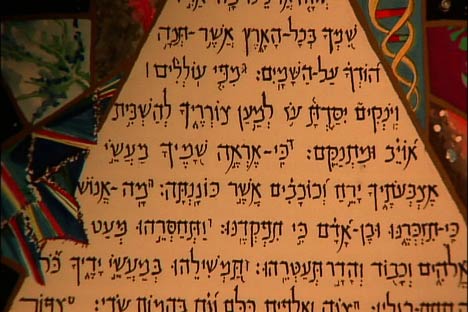 שִׁמְךָ בְּכָל־הָאָרֶץ אֲשֶׁר־תְּנָה
הוֹדְךָ עַל־הַשָּׁמָיִם׃ ג מִפִּי עוֹלְלִים ׀
וְיֹנְקִים יִסַּדְתָּ עֹז לְמַעַן צוֹרְרֶיךָ לְהַשְׁבִּית
אוֹיֵב וּמִתְנַקֵּם׃ ד כִּי־אֶרְאֶה שָׁמֶיךָ מַעֲשֵׂי
אֶצְבְּעֹתֶיךָ יָרֵחַ וְכוֹכָבִים אֲשֶׁר כּוֹנָנְתָּה׃ ה מָה־אֱנוֹשׁ
כִּי־תִזְכְּרֶנּוּ וּבֶן־אָדָם כִּי תִפְקְדֶנּוּ׃ ו וַתְּחַסְּרֵהוּ מְּעַט
מֵאֱלֹהִים וְכָבוֹד וְהָדָר תְּעַטְּרֵהוּ׃ ז תַּמְשִׁילֵהוּ בְּמַעֲשֵׂי יָדֶיךָ כֹּל
תַחַת־רַגְלָיו׃ ח צֹנֶה וַאֲלָפִים כֻּלָּם וְגַם בַּהֲמוֹת שָׂדָי׃ ט צִפּוֹר